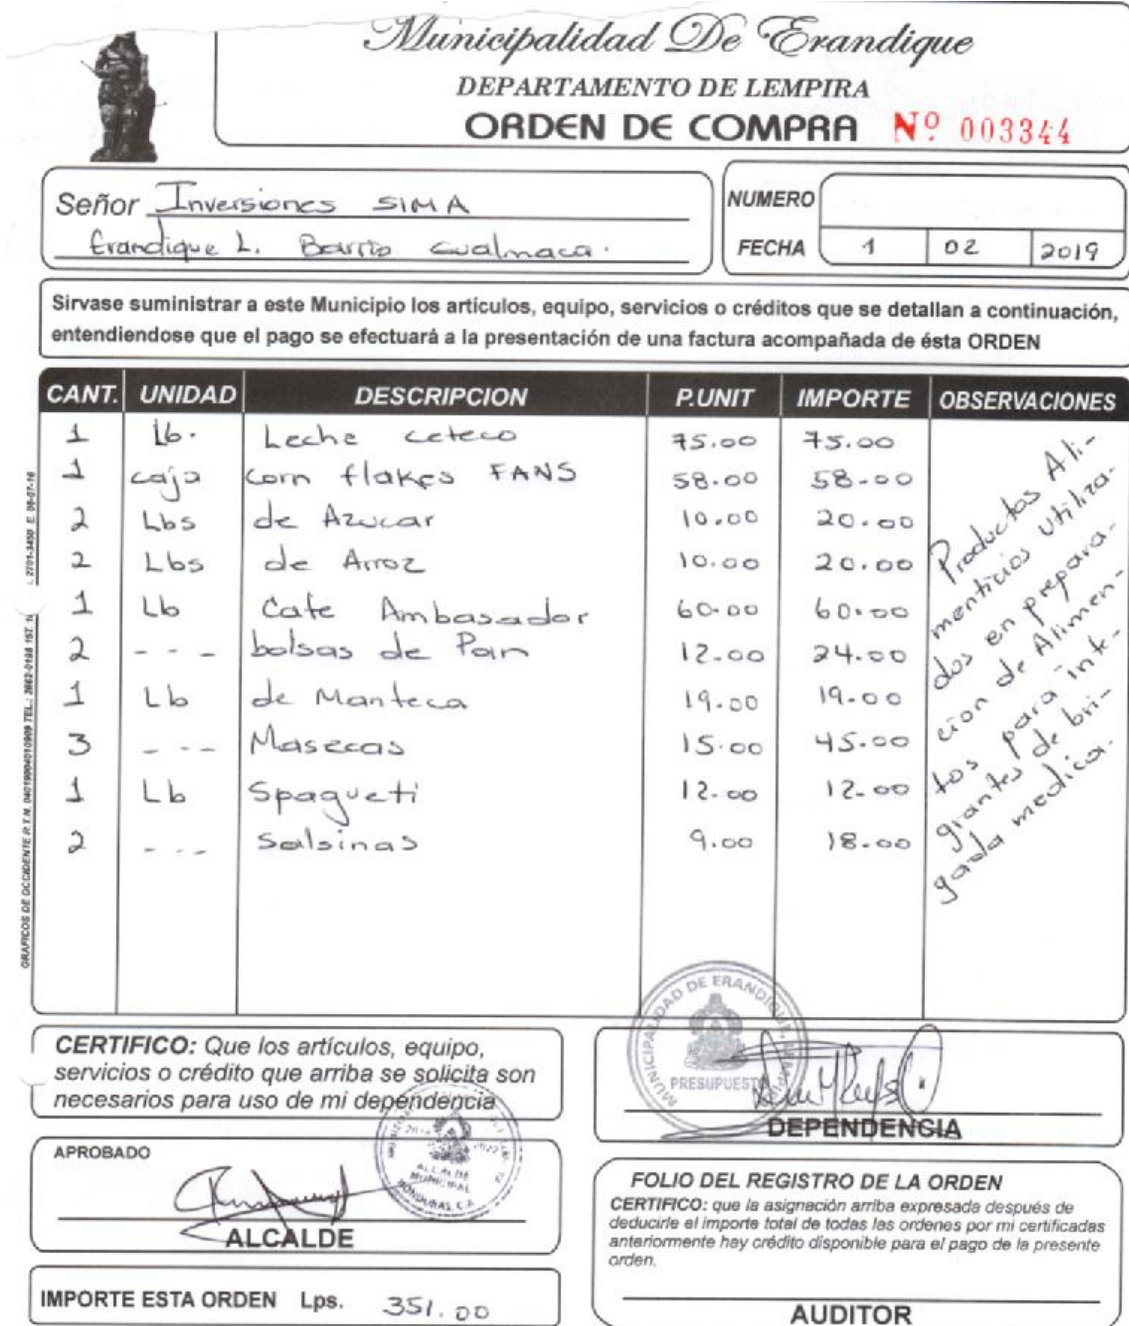 Municipalidad De Erandique
DEPARTAMENTO DE LEMPIRA
ORDEN DE COMPRA Nº 003344
Señor Inversiones SIMA
Erandique L. Barrio Gualmaca.
NUMERO
FECHA 1 02 2019
Sirvase suministrar a este Municipio los artículos, equipo, servicios o créditos que se detallan a continuación,
entendiendose que el pago se efectuará a la presentación de una factura acompañada de ésta ORDEN
CANT. UNIDAD DESCRIPCION P.UNIT IMPORTE OBSERVACIONES
1 Lb. Leche ceteco 75.00 75.00
1 caja corn flakes FANS 58.00 58.00
2 Lbs de Azucar 10.00 20.00
2 Lbs de Arroz 10.00 20.00
1 Lb Cafe Ambasador 60.00 60.00
2 - - - bolsas de Pan 12.00 24.00
1 Lb de Manteca 19.00 19.00
3 - - - Masecas 15.00 45.00
1 Lb Spagueti 12.00 12.00
2 - - - Salsinas 9.00 18.00
Productos Ali-
menticios utiliza-
dos en prepara-
cion de Alimen-
tos para inte-
grantes de bri-
gada medica.
GRAFICOS DE OCCIDENTE R.T.N. 04019004010909 TEL.: 2662-0198
CERTIFICO: Que los artículos, equipo,
servicios o crédito que arriba se solicita son
necesarios para uso de mi dependencia
MUNICIPALIDAD DE ERANDIQUE, LEMPIRA
PRESUPUESTO
DEPENDENCIA
APROBADO
ALCALDE
MUNICIPAL
HONDURAS, C.A.
ALCALDE
FOLIO DEL REGISTRO DE LA ORDEN
CERTIFICO: que la asignación arriba expresada después de
deducirle el importe total de todas las ordenes por mi certificadas
anteriormente hay crédito disponible para el pago de la presente
orden.
AUDITOR
IMPORTE ESTA ORDEN Lps. 351.00